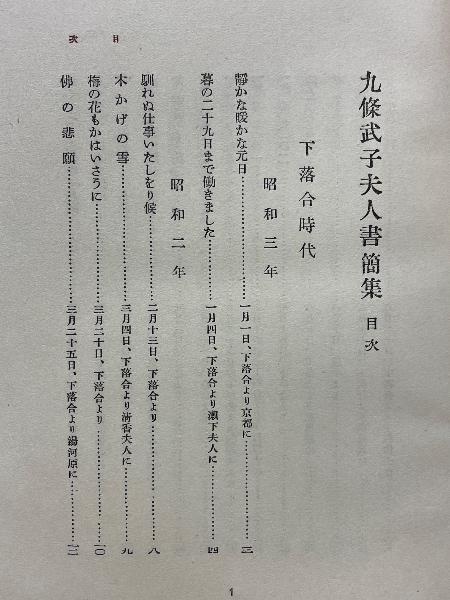 九條武子夫人書簡集 目次
下落合時代
昭和三年
靜かな暖かな元日…………一月一日、下落合より京都に…………三
暮の二十九日まで働きました…………一月四日、下落合より瀨下夫人に…………四
昭和二年
馴れぬ仕事いたしをり候…………二月十三日、下落合より…………八
木かげの雪…………三月四日、下落合より淸香夫人に…………九
梅の花もかはいさうに…………三月二十日、下落合より…………一〇
佛の悲願…………三月二十五日、下落合より湯河原に…………一二
目次
1